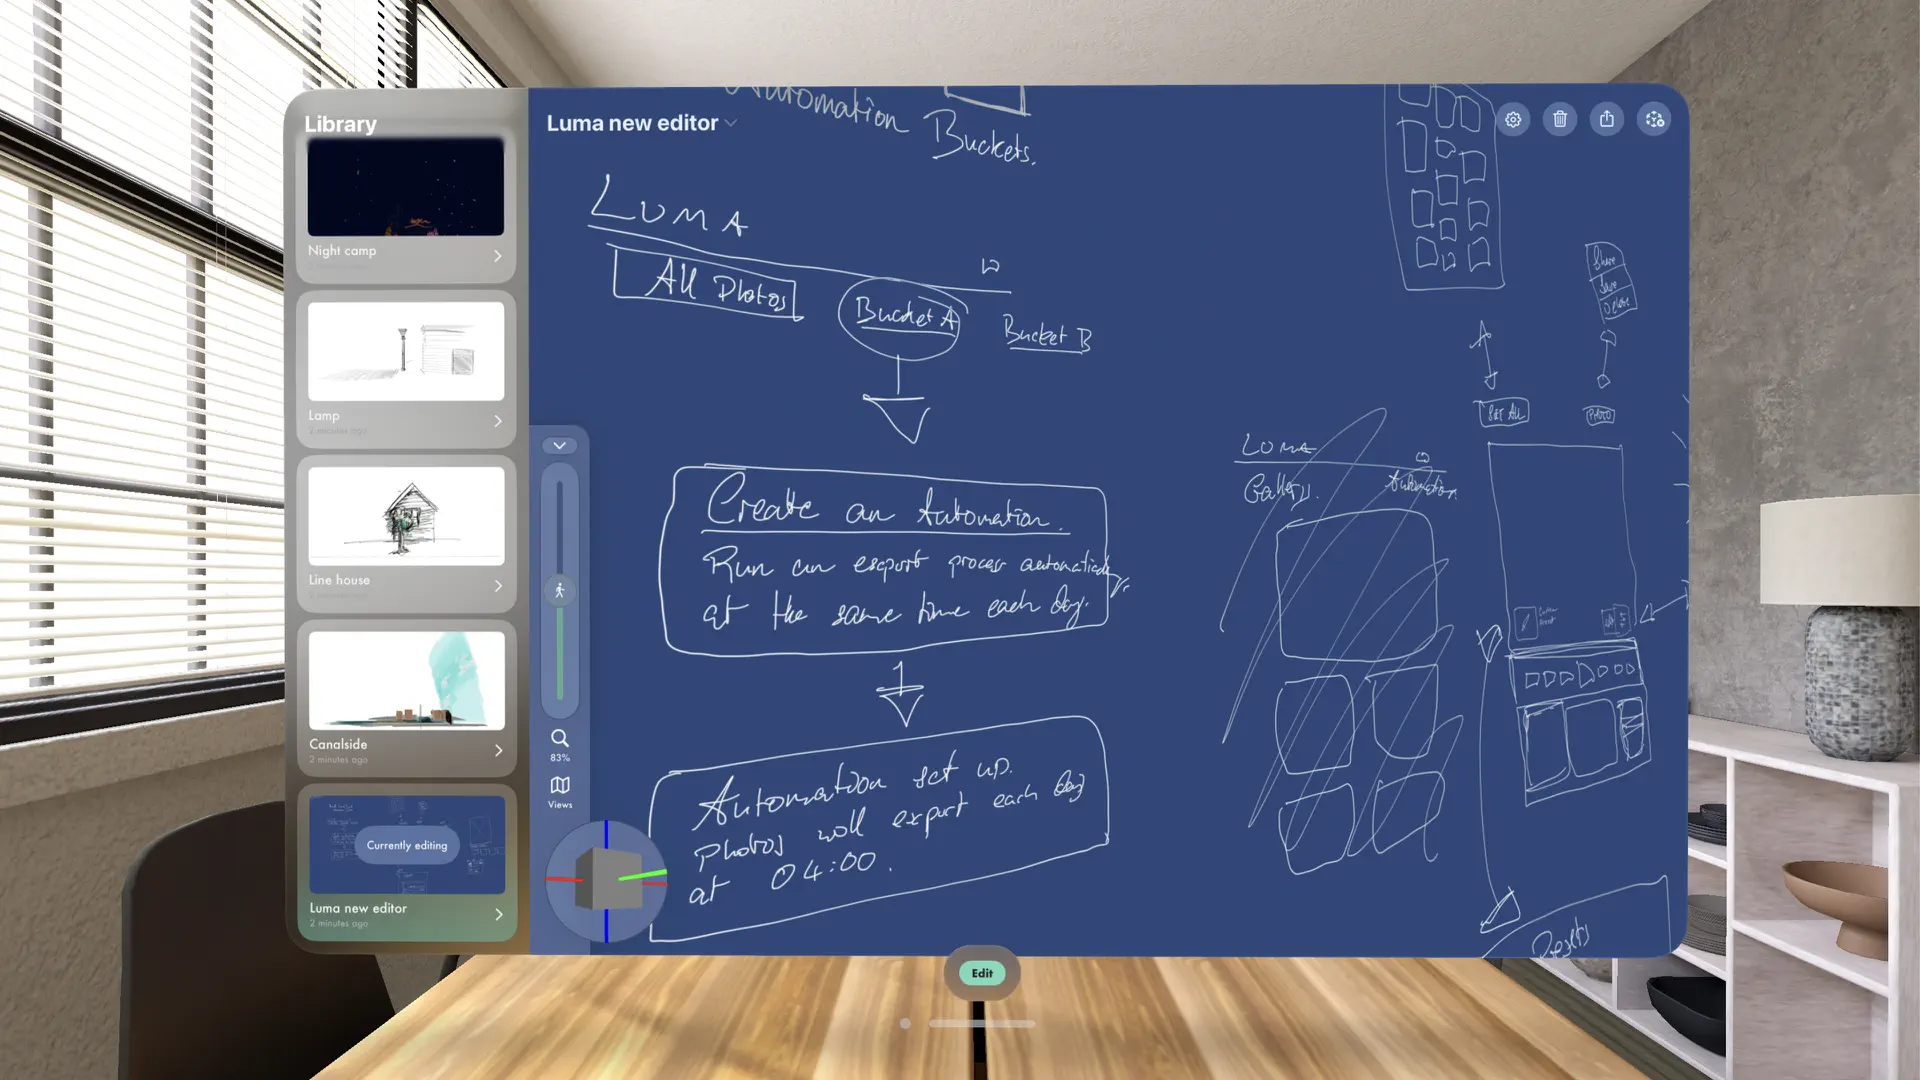 Library
Night camp
Lamp
2 minutes ago
Line house
2 minutes ago
Canalside
2 minutes ago
Currently editing
Luma new editor
2 minutes ago
Luma new editor
83%
Views
Automation
Buckets.
LUMA
All Photos
Bucket A
Bucket B
Create an Automation.
Run an export process automatically
at the same time each day.
Automation set up.
Photos will export each day
at 04:00.
LUMA
Gallery.
Automation
Share
Save
SET ALL
PHOTO
Presets
Edit